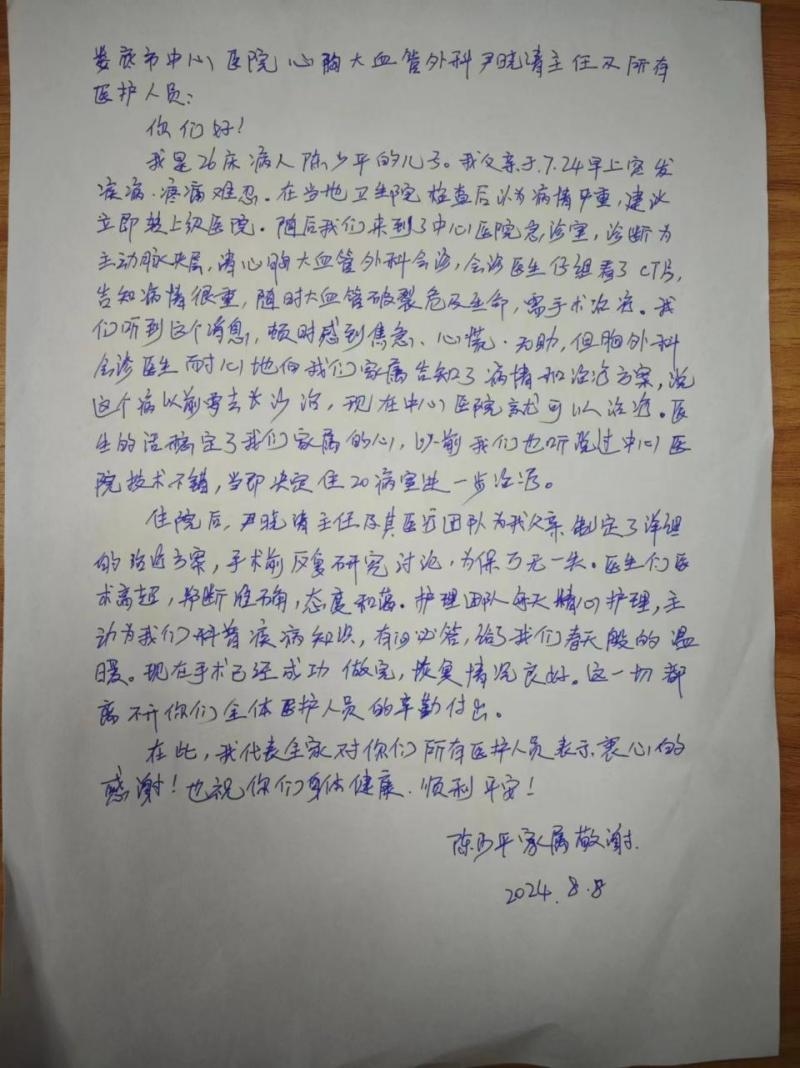 娄底市中心医院心胸大血管外科尹晓清主任及所有
医护人员:
你们好!
我是26床病人陈少平的儿子。我父亲于7.24早上突发
疾病.疼痛难忍。在当地卫生院检查后以为病情严重,建议
立即转上级医院。随后我们来到了中心医院急诊室,诊断为
主动脉夹层,请心胸大血管外科会诊,会诊医生仔细看了CT片,
告知病情很重,随时大血管破裂危及生命,需手术治疗。我
们听到这个消息,顿时感到焦急、心慌.无助,但胸外科
会诊医生耐心地向我们家属告知了病情和治疗方案,说
这个病以前要去长沙治,现在中心医院就可以治疗。医
生的话稳定了我们家属的心,以前我们也听说过中心医
院技术不错,当即决定住20病室进一步治疗。
住院后,尹晓清主任及其医疗团队为我父亲制定了详细
的治疗方案,手术前反复研究讨论,为保万无一失。医生们医
术高超,判断准确,态度和蔼。护理团队每天精心护理,主
动为我们科普疾病知识,有问必答,给了我们春天般的温
暖。现在手术已经成功做完,恢复情况良好。这一切都
离不开你们全体医护人员的辛勤付出。
在此,我代表全家对你们所有医护人员表示衷心的
感谢!也祝你们身体健康.顺利平安!
陈少平家属敬谢.
2024.8.8